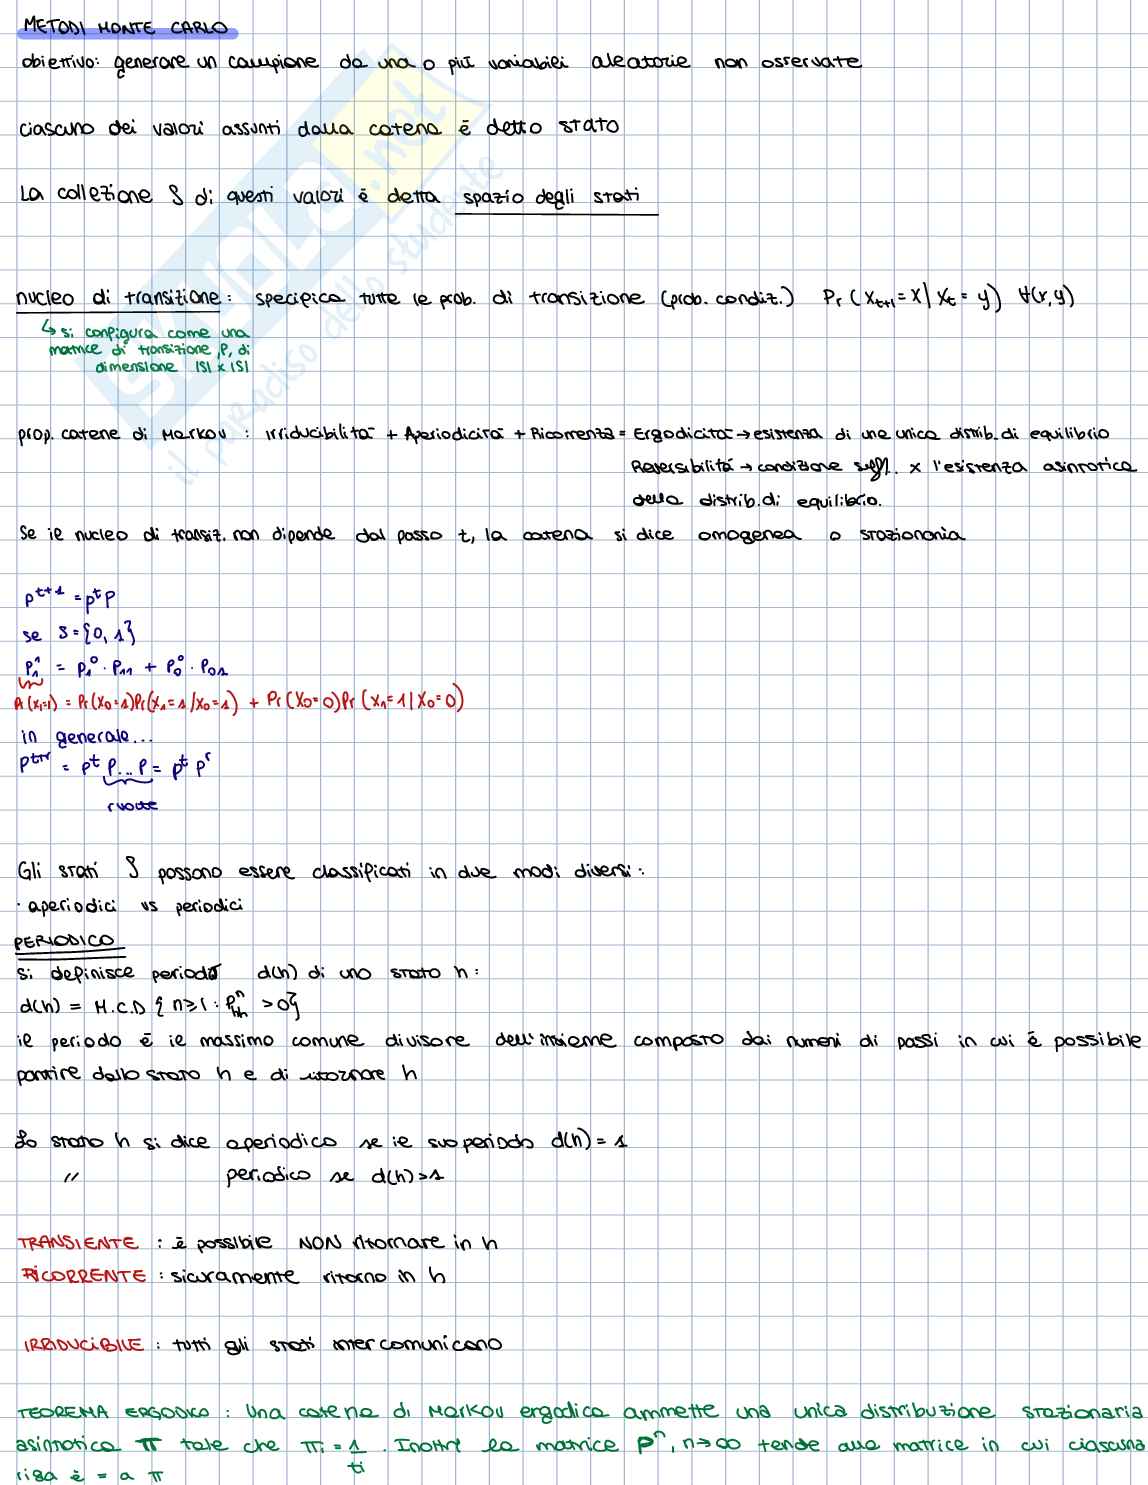 METODI MONTE CARLO
obiettivo: generare un campione da una o più variabili aleatorie non osservate
ciascuno dei valori assunti dalla catena è detto stato
La collezione S di questi valori è detta spazio degli stati
nucleo di transizione: specifica tutte le prob. di transizione (prob. condiz.) Pr (Xt+1 = X | Xt = y) ∀(x,y)
↳ si configura come una
matrice di transizione, P, di
dimensione |S| x |S|
prop. catene di Markov : irriducibilità + Aperiodicità + Ricorrenza = Ergodicità → esistenza di una unica distrib. di equilibrio
Reversibilità → condizione suff. x l'esistenza asintotica
della distrib. di equilibrio.
Se il nucleo di transiz. non dipende dal passo t, la catena si dice omogenea o stazionaria
p^t+1 = p^t P
se S = {0, 1}
p₁¹ = p₁⁰ · P₁₁ + p₀⁰ · P₀₁
Pr(X₁=1) = Pr(X₀=1)Pr(X₁=1|X₀=1) + Pr(X₀=0)Pr(X₁=1|X₀=0)
in generale...
p^t+r = p^t P...P = p^t P^r
r volte
Gli stati S possono essere classificati in due modi diversi:
· aperiodici vs periodici
PERIODICO
si definisce periodo d(h) di uno stato h:
d(h) = M.C.D { n≥1 : P^n_hh >0}
il periodo è il massimo comune divisore dell'insieme composto dai numeri di passi in cui è possibile
partire dallo stato h e di ritornare h
Lo stato h si dice aperiodico se il suo periodo d(h) = 1
" periodico se d(h)>1
TRANSIENTE : è possibile NON ritornare in h
RICORRENTE : sicuramente ritorno in h
IRRIDUCIBILE : tutti gli stati intercomunicano
TEOREMA ERGODICO : Una catena di Markov ergodica ammette una unica distribuzione stazionaria
asintotica π tale che πi = 1/ti . Inoltre la matrice P^n, n→∞ tende alla matrice in cui ciascuna
riga è = a π
SKUOLA.net
il paradiso dello studente